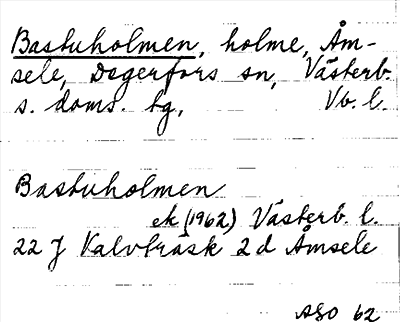 Bastuholmen, holme, Åm-
sele, Degerfors sn, Västerb.
s. doms. tg, Vb. l.
Bastuholmen
ek (1962) Västerb. l.
22 J Kalvträsk 2 d Åmsele
ASO 62